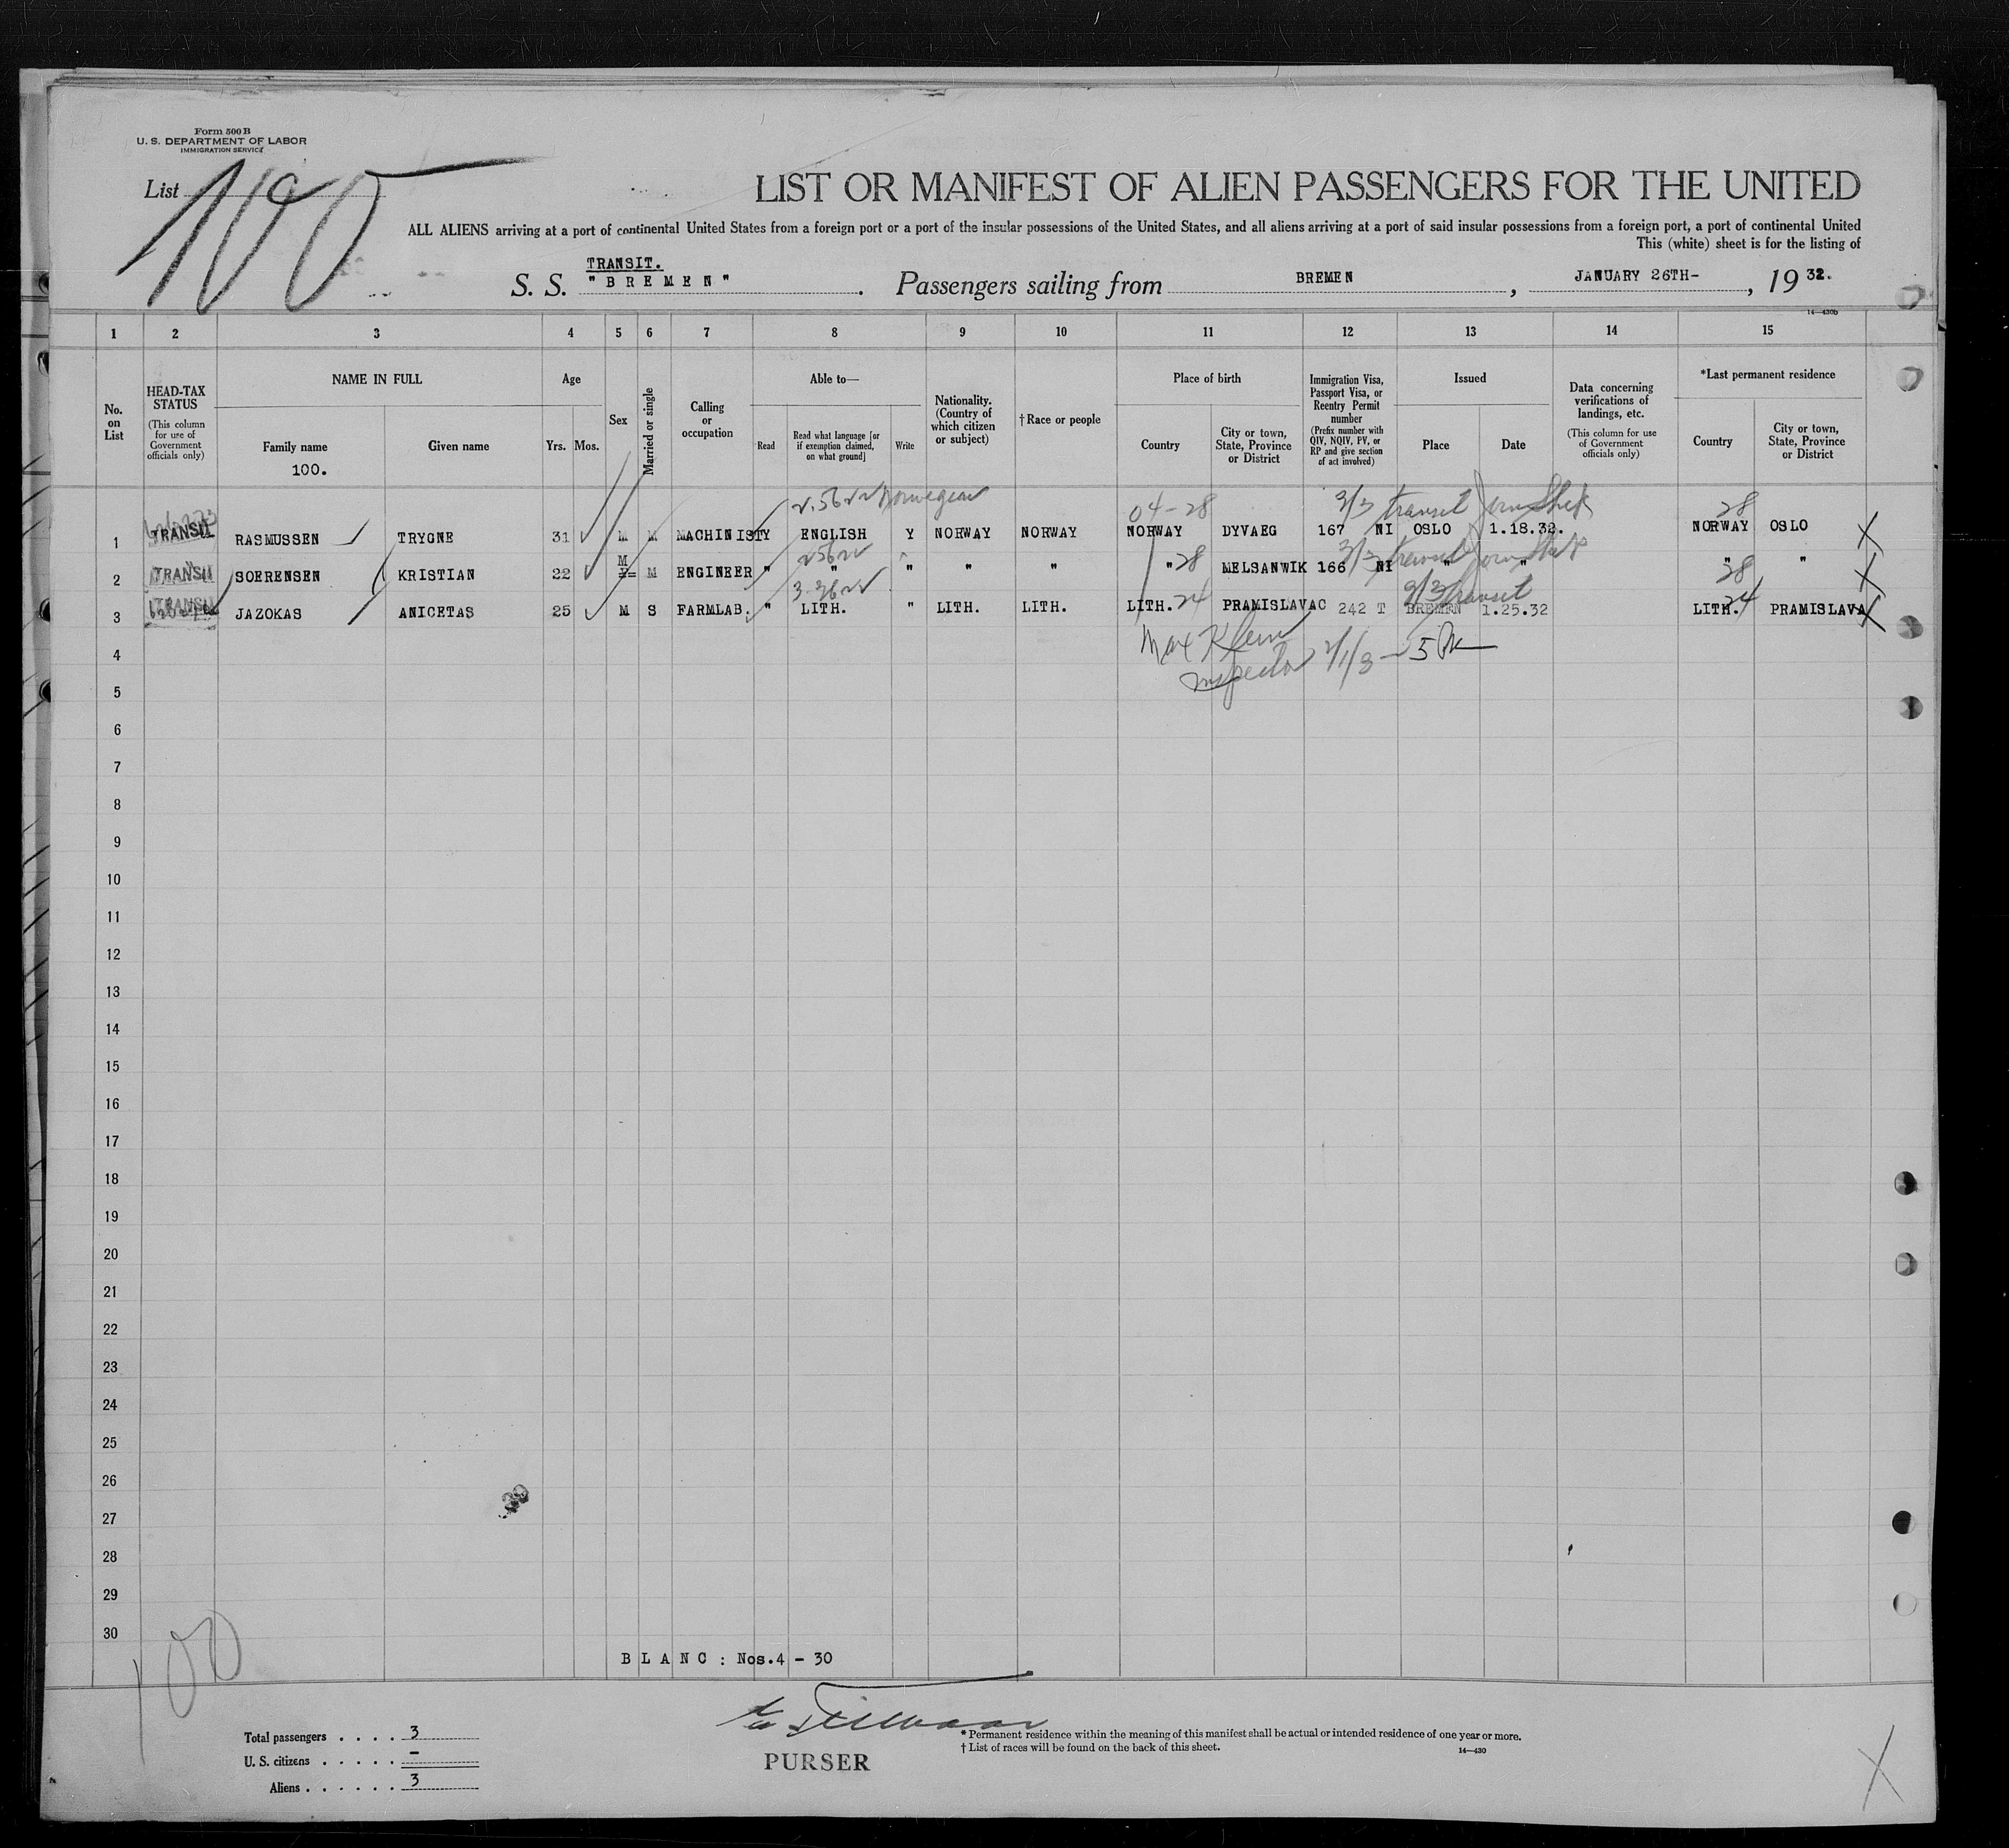 Form 500 B
U. S. DEPARTMENT OF LABOR
IMMIGRATION SERVICE
List 100
LIST OR MANIFEST OF ALIEN PASSENGERS FOR THE UNITED
ALL ALIENS arriving at a port of continental United States from a foreign port or a port of the insular possessions of the United States, and all aliens arriving at a port of said insular possessions from a foreign port, a port of continental United
This (white) sheet is for the listing of
TRANSIT.
S. S. "BREMEN". Passengers sailing from BREMEN, JANUARY 26TH-, 1932.
14—430b
1 2 3 4 5 6 7 8 9 10 11 12 13 14 15
No. on List
HEAD-TAX STATUS
(This column for use of Government officials only)
NAME IN FULL
Family name
100.
Given name
Age
Yrs. Mos.
Sex
Married or single
Calling or occupation
Able to—
Read
Read what language [or if exemption claimed, on what ground]
Write
Nationality. (Country of which citizen or subject)
† Race or people
Place of birth
Country
City or town, State, Province or District
Immigration Visa, Passport Visa, or Reentry Permit number
(Prefix number with QIV, NQIV, PV, or RP and give section of act involved)
Issued
Place
Date
Data concerning verifications of landings, etc.
(This column for use of Government officials only)
*Last permanent residence
Country
City or town, State, Province or District
Norwegian 04-28 3/3 transit 28
1 TRANSIT RASMUSSEN TRYGNE 31 M M MACHINIST Y ENGLISH Y NORWAY NORWAY NORWAY DYVAEG 167 NI OSLO 1.18.32. NORWAY OSLO X
2 TRANSIT SOERENSEN KRISTIAN 22 M M ENGINEER " " " " " " 28 MELSANWIK 166 NI " " " 28 " X
3 TRANSIT JAZOKAS ANICETAS 25 M S FARMLAB. " LITH. " LITH. LITH. LITH. 24 PRAMISLAVAC 242 T BREMEN 1.25.32 LITH. 24 PRAMISLAVA X
transit
4 Max Klein
Inspector
5
6
7
8
9
10
11
12
13
14
15
16
17
18
19
20
21
22
23
24
25
26
27
28
29
30
BLANC: Nos.4 - 30
100
Total passengers . . . . 3
U. S. citizens . . . . . –
Aliens . . . . . . 3
PURSER
* Permanent residence within the meaning of this manifest shall be actual or intended residence of one year or more.
† List of races will be found on the back of this sheet.
14—430
X